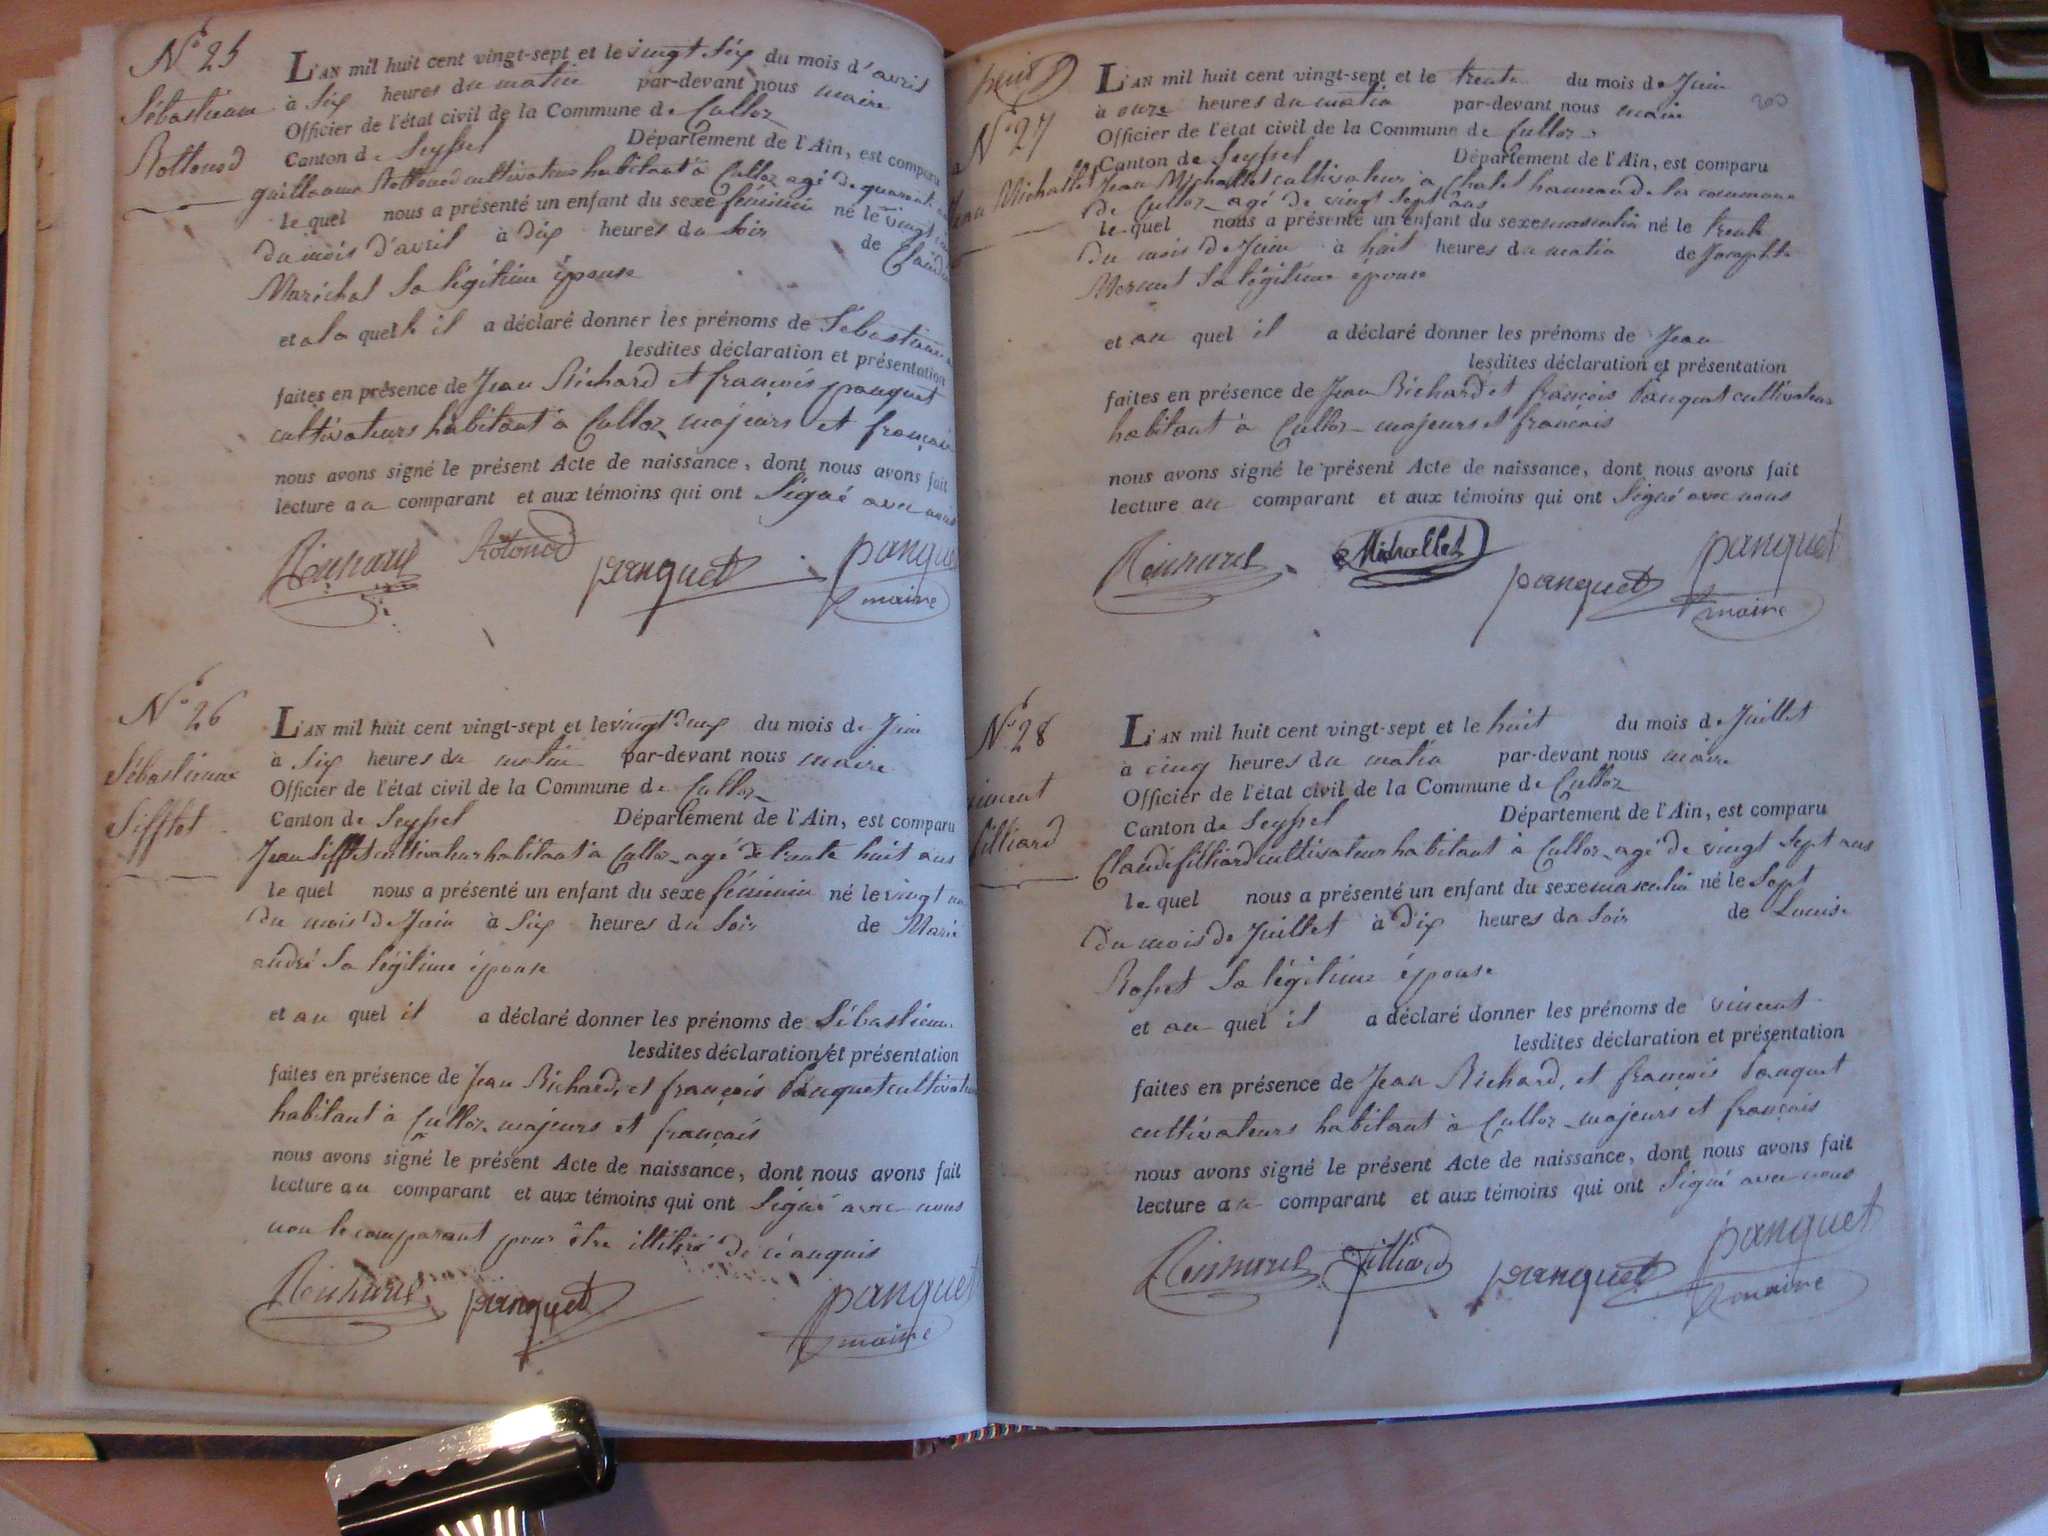 N° 25
Sébastienne
Rottonod
L'AN mil huit cent vingt-sept et le vingt six du mois d'avril
à six heures du matin par-devant nous maire
Officier de l'état civil de la Commune de Culloz
Canton de Seyssel Département de l'Ain, est comparu
guillaume Rottonod cultivateur habitant à Culloz agé de quarante
le quel nous a présenté un enfant du sexe féminin né le vingt
du mois d'avril à dix heures du soir de Claudine
Maréchal sa légitime épouse
et a la quelle il a déclaré donner les prénoms de Sébastienne
lesdites déclaration et présentation
faites en présence de Jean Richard et françois panquet
cultivateurs habitant à Culloz majeurs et français
nous avons signé le présent Acte de naissance, dont nous avons fait
lecture au comparant et aux témoins qui ont signé avec nous
Richard Rotonod panquet panquet
maire
N° 26
Sébastienne
Sifflet
L'AN mil huit cent vingt-sept et le vingt deux du mois de Juin
à six heures du matin par-devant nous maire
Officier de l'état civil de la Commune de Culloz
Canton de Seyssel Département de l'Ain, est comparu
Jean Sifflet cultivateur habitant à Culloz agé de trente huit ans
le quel nous a présenté un enfant du sexe féminin né le vingt un
du mois de Juin à six heures du soir de Marie
andré sa légitime épouse
et au quel il a déclaré donner les prénoms de Sébastienne
lesdites déclaration et présentation
faites en présence de Jean Richard, et françois Panquet cultivateurs
habitant à Culloz majeurs et français
nous avons signé le présent Acte de naissance, dont nous avons fait
lecture au comparant et aux témoins qui ont signé avec nous
non le comparant pour être illitéré de ce enquis
Richard panquet panquet
maire
203
N° 27
Jean Michallet
L'AN mil huit cent vingt-sept et le trente du mois de Juin
à onze heures du matin par-devant nous maire
Officier de l'état civil de la Commune de Culloz
Canton de Seyssel Département de l'Ain, est comparu
Jean Michallet cultivateur à Chatel hameau de la commune
de Culloz agé de vingt sept ans
le quel nous a présenté un enfant du sexe masculin né le trente
du mois de Juin à huit heures du matin de Josephte
Mercent sa légitime épouse
et au quel il a déclaré donner les prénoms de Jean
lesdites déclaration et présentation
faites en présence de Jean Richard et françois Panquet cultivateurs
habitant à Culloz majeurs et français
nous avons signé le présent Acte de naissance, dont nous avons fait
lecture au comparant et aux témoins qui ont signé avec nous
Richard Michallet panquet panquet
maire
N° 28
vincent
filliard
L'AN mil huit cent vingt-sept et le huit du mois de Juillet
à cinq heures du matin par-devant nous maire
Officier de l'état civil de la Commune de Culloz
Canton de Seyssel Département de l'Ain, est comparu
Claude filliard cultivateur habitant à Culloz agé de vingt sept ans
le quel nous a présenté un enfant du sexe masculin né le sept
du mois de Juillet à dix heures du soir de Louise
Rosset sa légitime épouse
et au quel il a déclaré donner les prénoms de vincent
lesdites déclaration et présentation
faites en présence de Jean Richard, et françois Panquet
cultivateurs habitant à Culloz majeurs et français
nous avons signé le présent Acte de naissance, dont nous avons fait
lecture au comparant et aux témoins qui ont signé avec nous
Richard filliard panquet panquet
maire